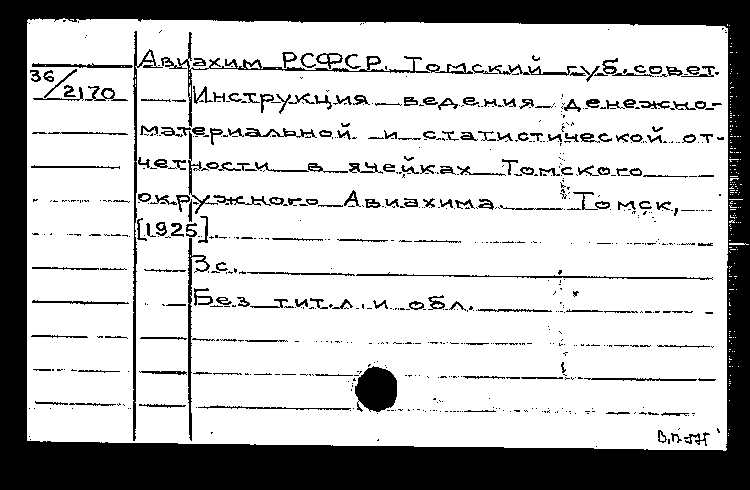 Авиахим РСФСР. Томский губ.совет.
36/2170
Инструкция ведения денежно-
материальной и статистической от-
четности в ячейках Томского
окружного Авиахима. Томск,
[1925].
3с.
Без тит.л.и обл.